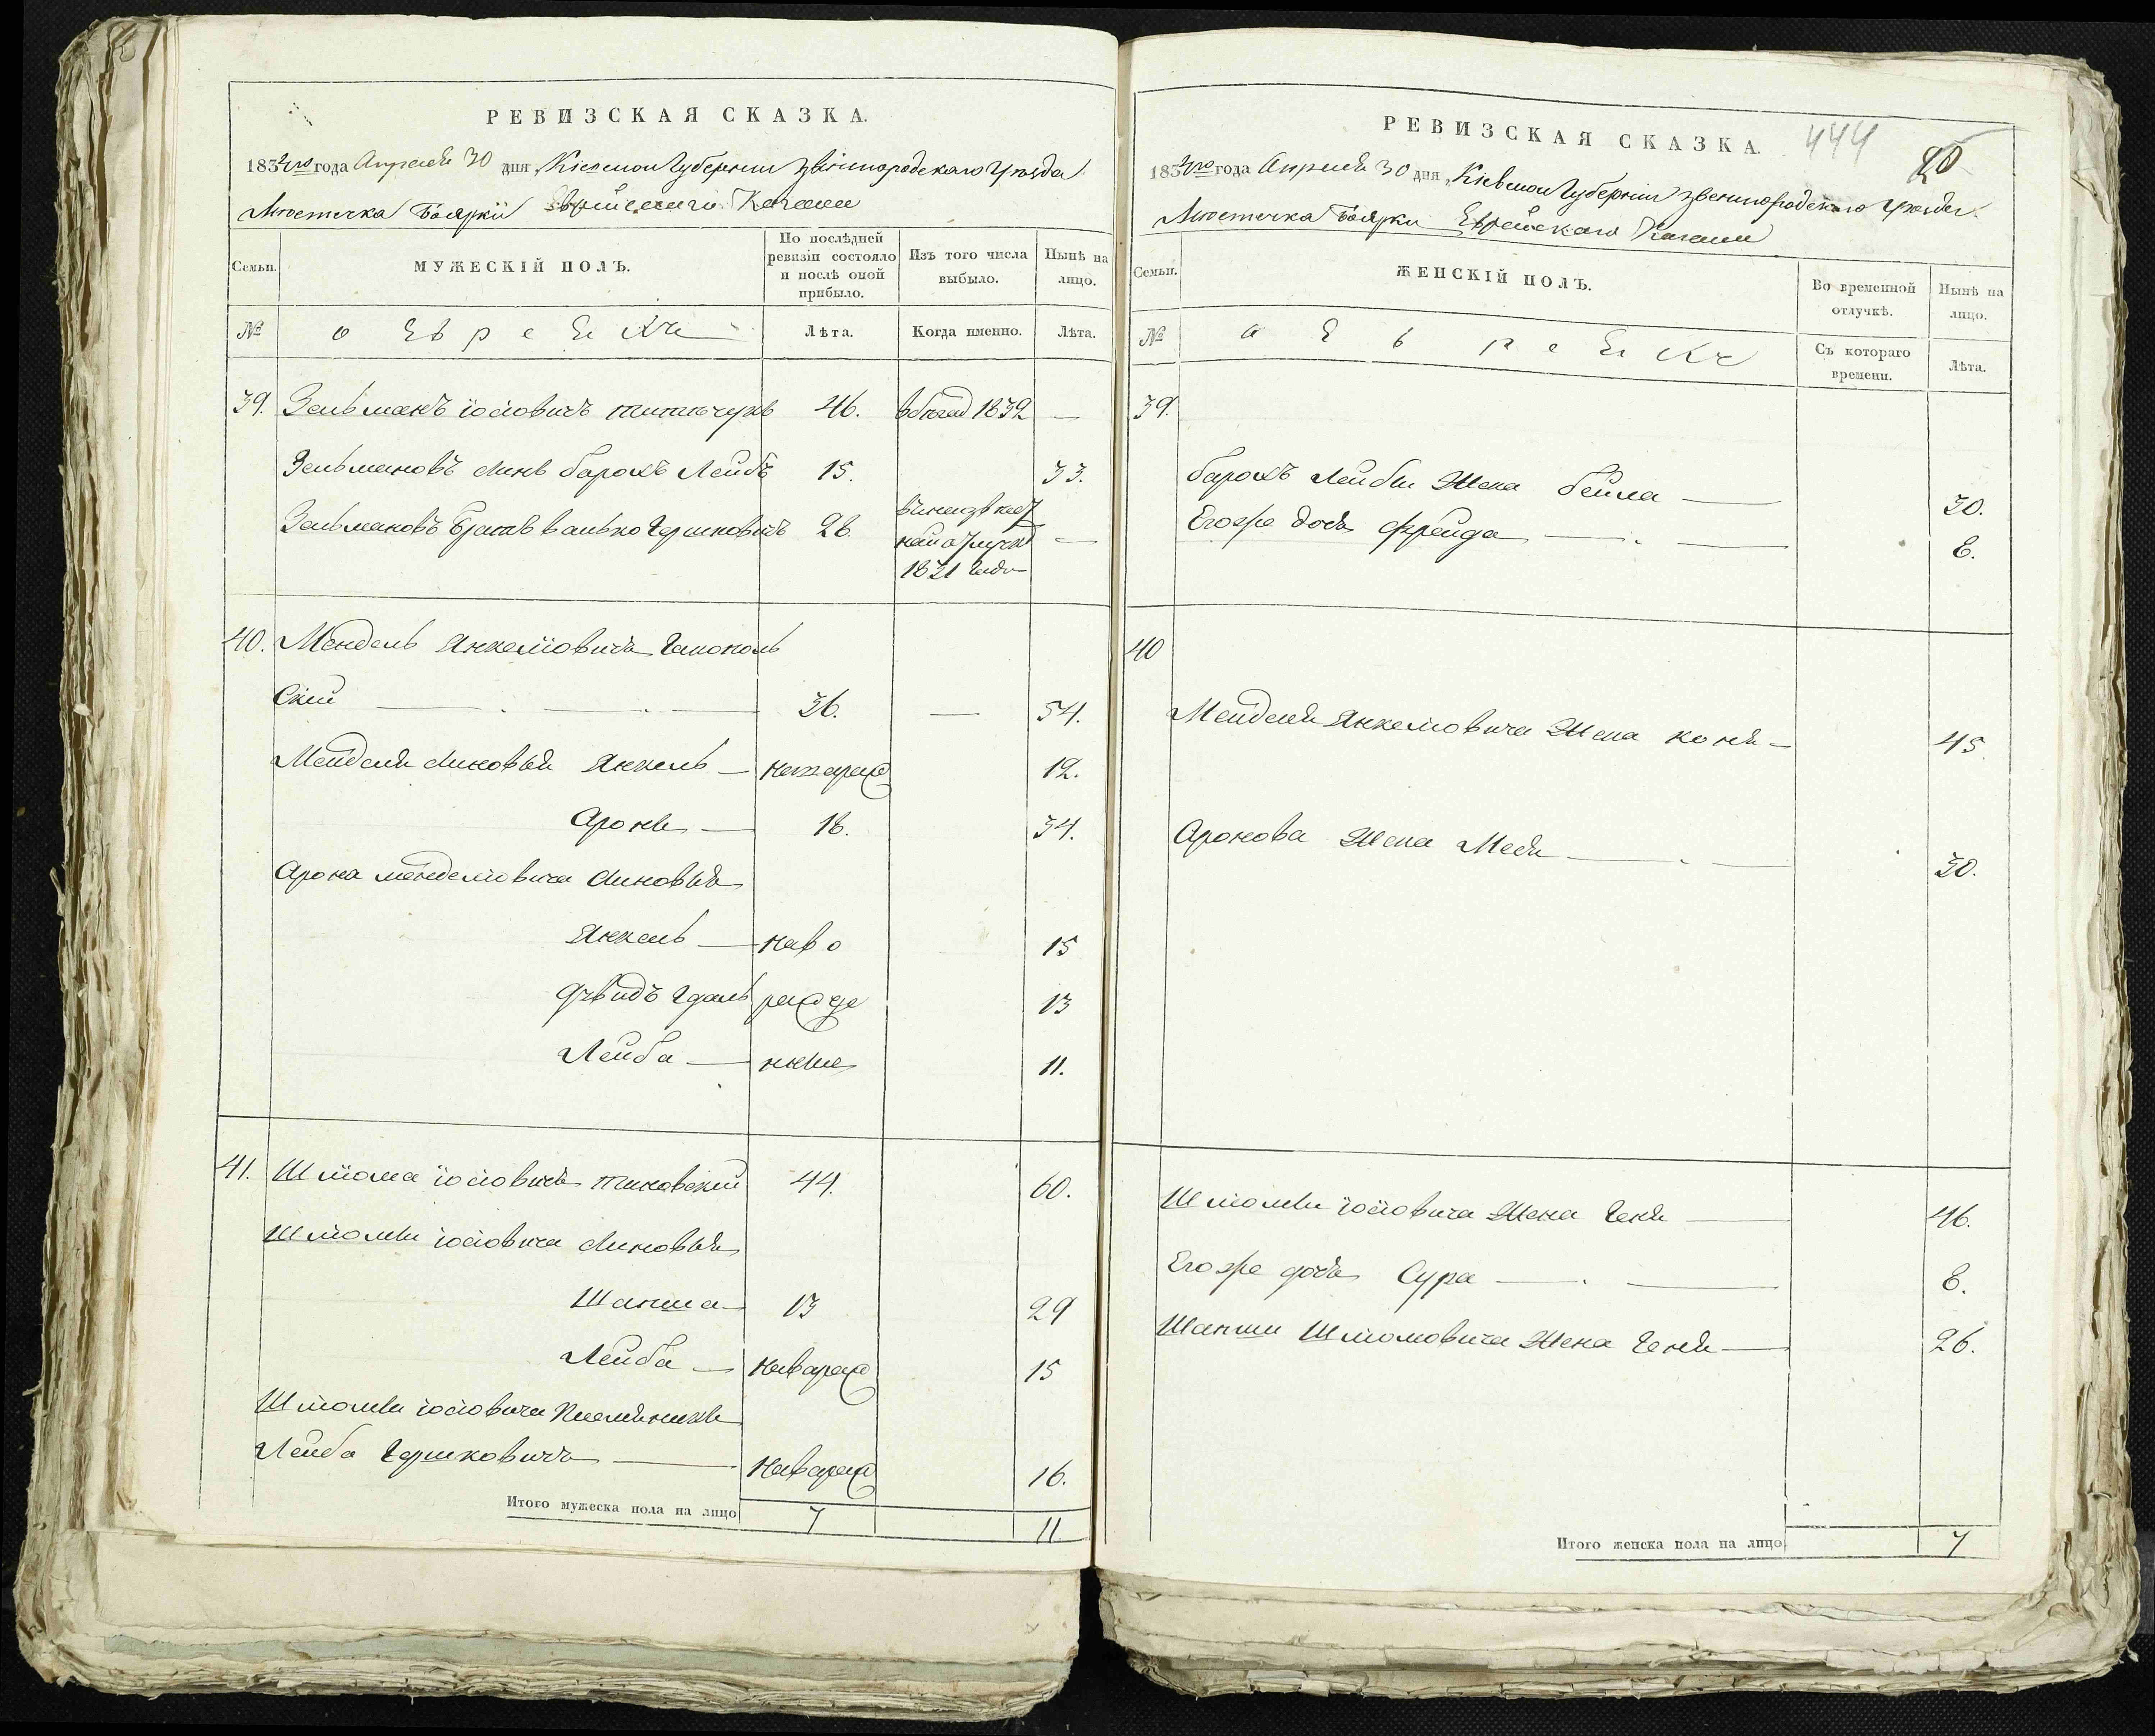 РЕВИЗСКАЯ СКАЗКА.
1834го года Апреля 30 дня, Кіевской Губерніи Звенигородскаго Уезда
Местечка Боярки Еврейскаго Кагала
Семьи.
МУЖЕСКІЙ ПОЛЪ.
По послѣдней ревизіи состояло и послѣ оной прибыло.
Изъ того числа выбыло.
Нынѣ на лицо.
№
о Евреяхъ
Лѣта.
Когда именно.
Лѣта.
39. Зельманъ Іосіовичъ 46. 1832 —
Зельмановъ сынъ Борохъ Лейбъ 15. 33.
Зельмановъ братъ Волько Гершковичъ 28. —
1831 года
40. Мендель Янкеліовичъ
скій — 36. — 54.
Менделя сыновья Янкель — 12.
Аронъ — 18. 34.
Арона Менделіовича сыновья
Янкель — ново 15
Дувидъ Гдаль рожде 13
Лейба — нные 11.
41. Шліома Іосіовичъ 44. 60.
Шліомы Іосіовича сыновья
Шапша 13 29
Лейба — новорож 15
Шліомы Іосіовича племянникъ
Лейба Гершковичъ — новорож 16.
Итого мужеска пола на лицо 7 11
РЕВИЗСКАЯ СКАЗКА.
444
1834го года Апреля 30 дня, Кіевской Губерніи Звенигородскаго Уезда
Местечка Боярки Еврейскаго Кагала
Семьи.
ЖЕНСКІЙ ПОЛЪ.
Во временной отлучкѣ.
Нынѣ на лицо.
№
о Евреяхъ
Съ котораго времени.
Лѣта.
39.
Борохъ Лейбы жена Бейла — 30.
Егоже дочь Фрейда — 8.
40
Менделя Янкеліовича жена — 45.
Аронова жена — 30.
Шліомы Іосіовича жена Геня — 46.
Егоже дочь Сура — 8.
Шапши Шліомовича жена Геня — 26.
Итого женска пола на лицо 7